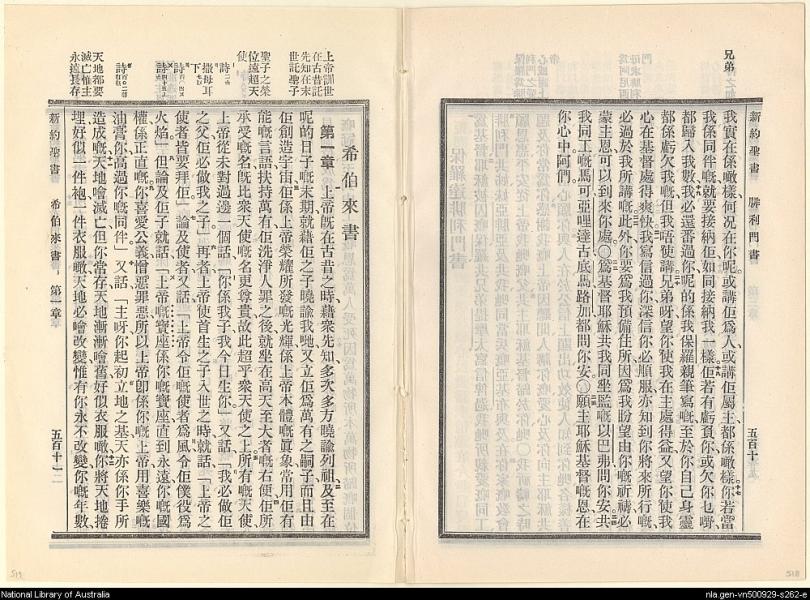 兄弟
新約聖書 腓利門書 五百十一
我實在係噉樣何况在你呢或講佢爲人或講佢屬主都係噉樣你若當
我係同伴嘅就要接納佢如同接納我一樣佢若有虧負你或欠你乜嘢
都歸入我數我必還番過你呢的係我保羅親筆寫嘅至於你自己身靈
都係虧欠我嘅但我唔使講兄弟呀望你使我在主處得益又望你使我
心在基督處得爽快我寫信過你深信你必順服亦知到你將來所行嘅
必過於我所講嘅此外你要爲我預備住所因爲我盼望由你嘅祈禱必
蒙主恩可以到來你處○爲基督耶穌共我同坐監嘅以巴弗問你安共
我同工嘅馬可亞哩達古底馬路加都問你安○願主耶穌基督嘅恩在
你心中阿們
上帝訓世
在古昔託
先知在末
世託聖子
聖子之榮
位遠超天
使
詩
撒母耳
下
詩
詩
詩
天地都要
滅亡惟主
永遠長存
新約聖書 希伯來書 第一章 五百十二
希伯來書
第一章 上帝既在古昔之時藉衆先知多次多方曉諭列祖及至在
呢的日子嘅末期就藉佢之子曉諭我哋又立佢爲萬有之嗣子而且由
佢創造宇宙佢係上帝榮耀所發嘅光輝係上帝本體嘅眞象常用佢有
能嘅言語扶持萬有佢洗淨人罪之後就坐在高天至大者嘅右便佢所
承受嘅名既比衆天使嘅名更尊貴故此超乎衆天使之上所有嘅天使
上帝從未對過邊一個話「你係我子我今日生你」又話「我必做佢
之父佢必做我之子」再者上帝使首生之子入世之時就話「上帝之
使者皆要拜佢」論及使者又話「上帝令佢嘅使者爲風令佢僕役爲
火焰」但論及佢子就話「上帝嘅寶座係你嘅寶座直到永遠你嘅國
權係正直嘅你喜愛公義憎惡罪惡所以上帝卽係你嘅上帝用喜樂嘅
油膏你高過你嘅同伴」又話「主呀你起初立地之基天亦係你手所
造成嘅天地噲滅亡但你常存天地漸漸噲舊好似衣服噉你將天地捲
埋好似一件袍一件衣服噉天地必噲改變惟有你永不改變你嘅年數
519
518
National Library of Australia
nla.gen-vn500929-s262-e